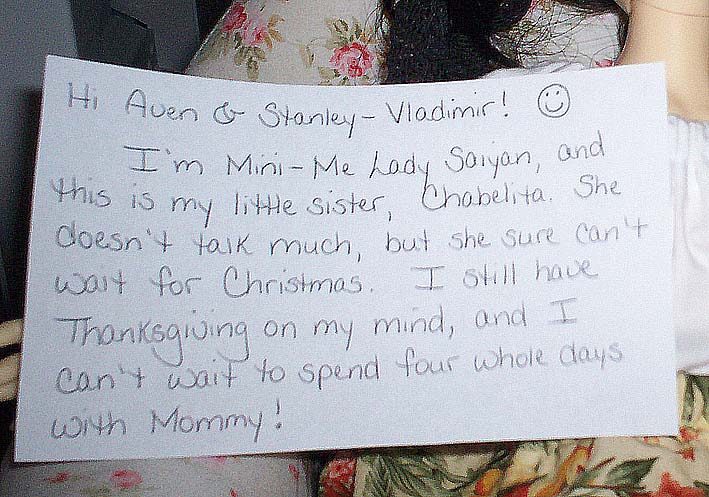 Hi Aven & Stanley-Vladimir! ☺
I'm Mini-Me Lady Saiyan, and
this is my little sister, Chabelita. She
doesn't talk much, but she sure can't
wait for Christmas. I still have
Thanksgiving on my mind, and I
can't wait to spend four whole days
with Mommy!